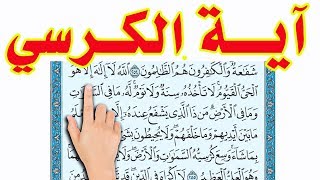 آيـة الكـرسي
شَفَـٰعَةٌ وَٱلْكَـٰفِرُونَ هُمُ ٱلظَّـٰلِمُونَ ٢٥٤ ٱللَّهُ لَآ إِلَـٰهَ إِلَّا هُوَ
ٱلْحَيُّ ٱلْقَيُّومُ لَا تَأْخُذُهُۥ سِنَةٌ وَلَا نَوْمٌ لَّهُۥ مَا فِي ٱلسَّمَـٰوَٰتِ
وَمَا فِي ٱلْأَرْضِ مَن ذَا ٱلَّذِي يَشْفَعُ عِندَهُۥٓ إِلَّا بِإِذْنِهِۦ يَعْلَمُ
مَا بَيْنَ أَيْدِيهِمْ وَمَا خَلْفَهُمْ وَلَا يُحِيطُونَ بِشَيْءٍ مِّنْ عِلْمِهِۦٓ إِلَّا
بِمَا شَآءَ وَسِعَ كُرْسِيُّهُ ٱلسَّمَـٰوَٰتِ وَٱلْأَرْضَ وَلَا يَـُٔودُهُۥ حِفْظُهُمَا
وَهُوَ ٱلْعَلِيُّ ٱلْعَظِيمُ ٢٥٥ لَآ إِكْرَاهَ فِي ٱلدِّينِ